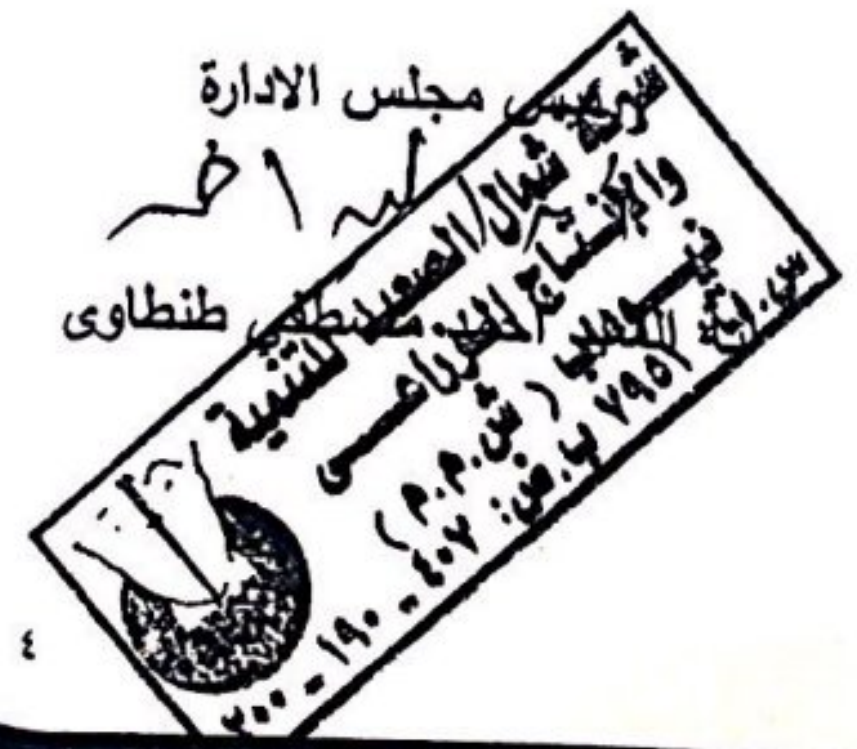 رئيس مجلس الادارة
مصطفى طنطاوى
شركة شمال الصعيد للتنمية
والإنتاج الزراعى
(ش.م.م)
س.ت: ٧٩٥٢ ب.ض: ٤٠٧ - ١٩٠ - ٢٠٠
٤